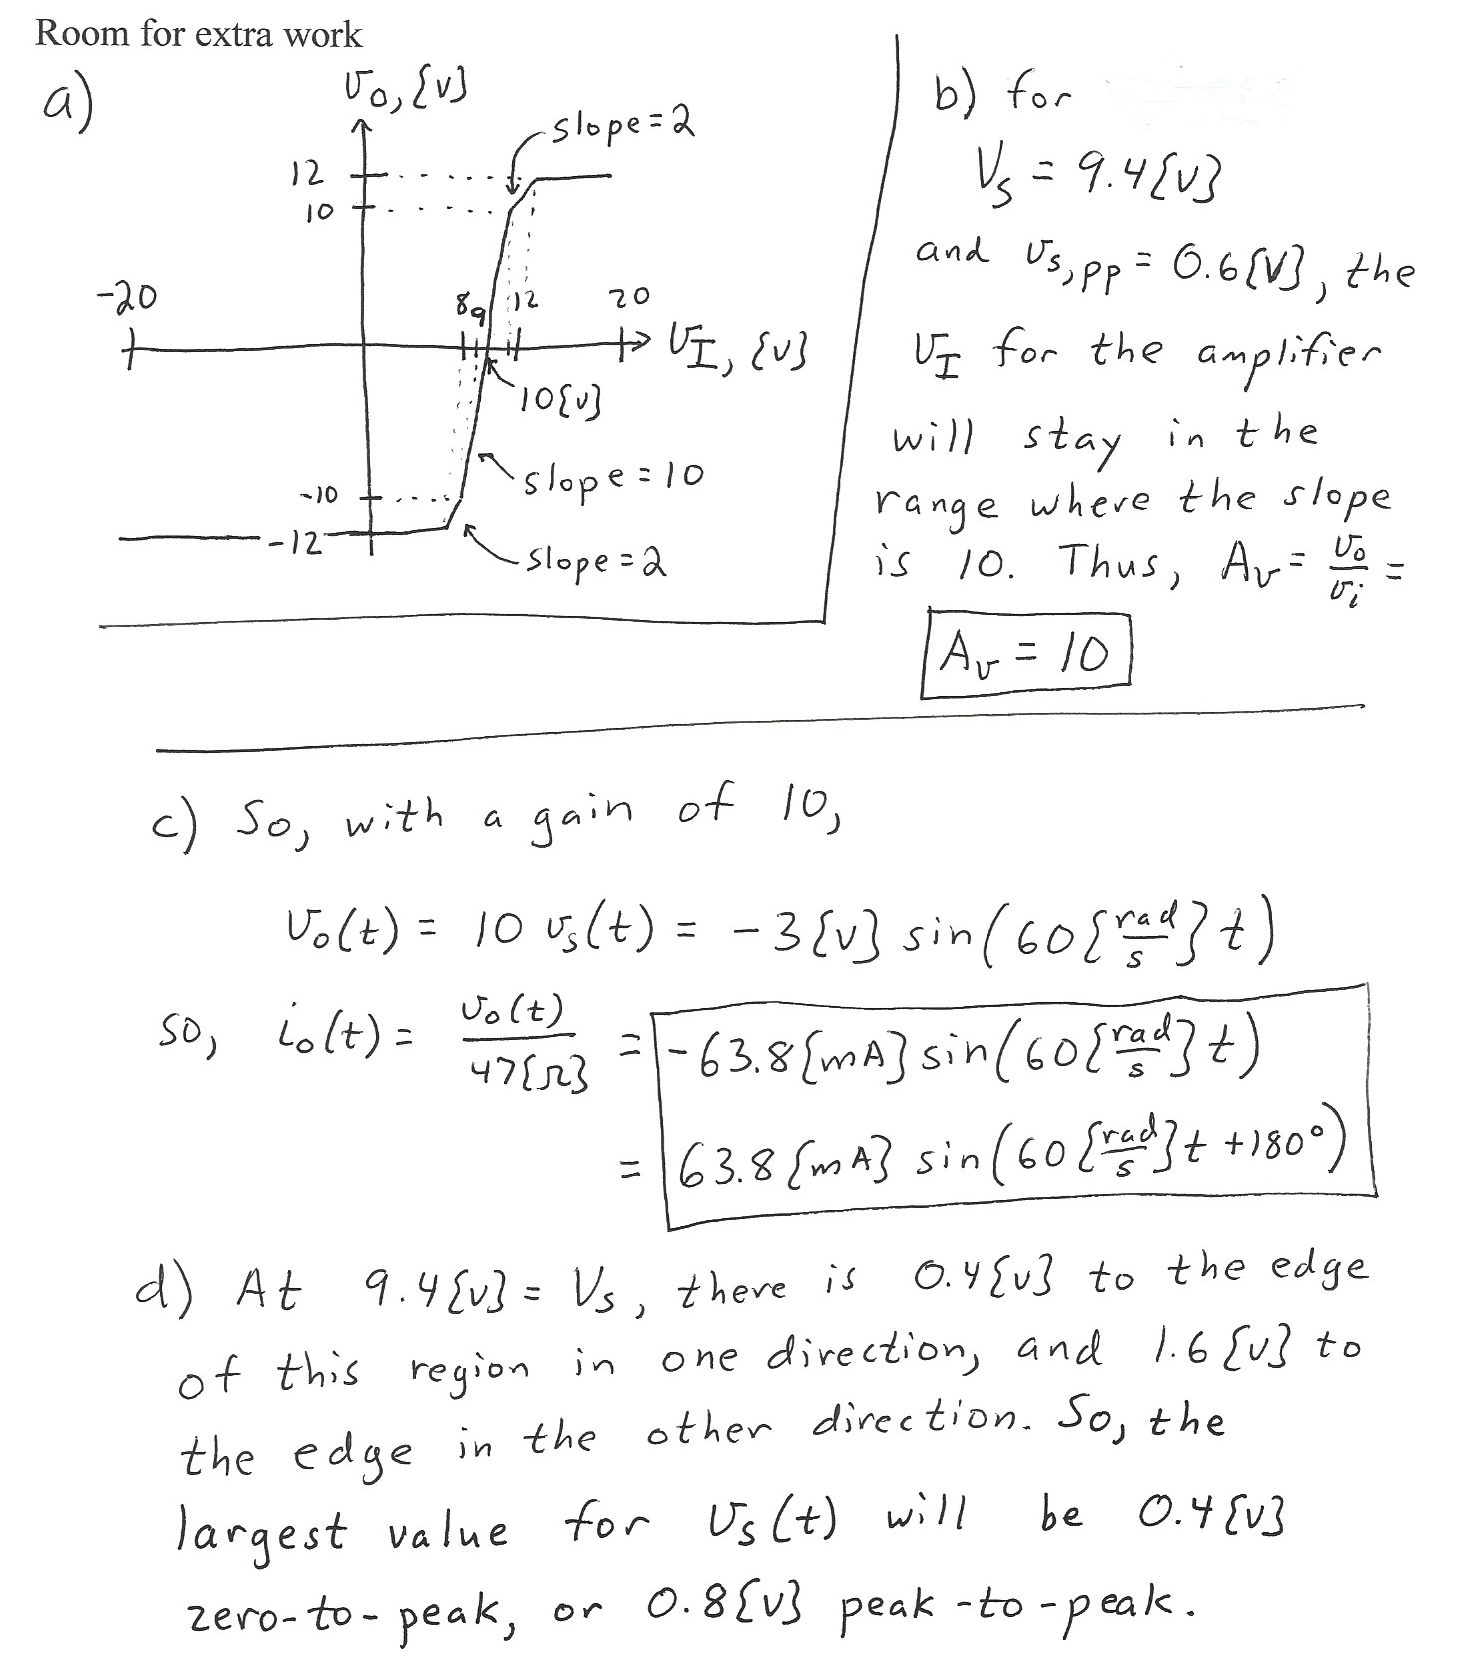 Room for extra work
a)
vo, {v}
slope = 2
12
10
-20
8 9 12 20
vI, {v}
10{v}
slope = 10
-10
-12
slope = 2
b) for
Vs = 9.4{v}
and vs,pp = 0.6{V}, the
vI for the amplifier
will stay in the
range where the slope
is 10. Thus, Av = vo/vi =
Av = 10
c) So, with a gain of 10,
vo(t) = 10 vs(t) = -3{v} sin(60{rad/s}t)
so, io(t) = vo(t)/47{Ω} = -63.8{mA} sin(60{rad/s}t)
= 63.8{mA} sin(60{rad/s}t +180°)
d) At 9.4{v} = Vs, there is 0.4{v} to the edge
of this region in one direction, and 1.6{v} to
the edge in the other direction. So, the
largest value for vs(t) will be 0.4{v}
zero-to-peak, or 0.8{v} peak-to-peak.